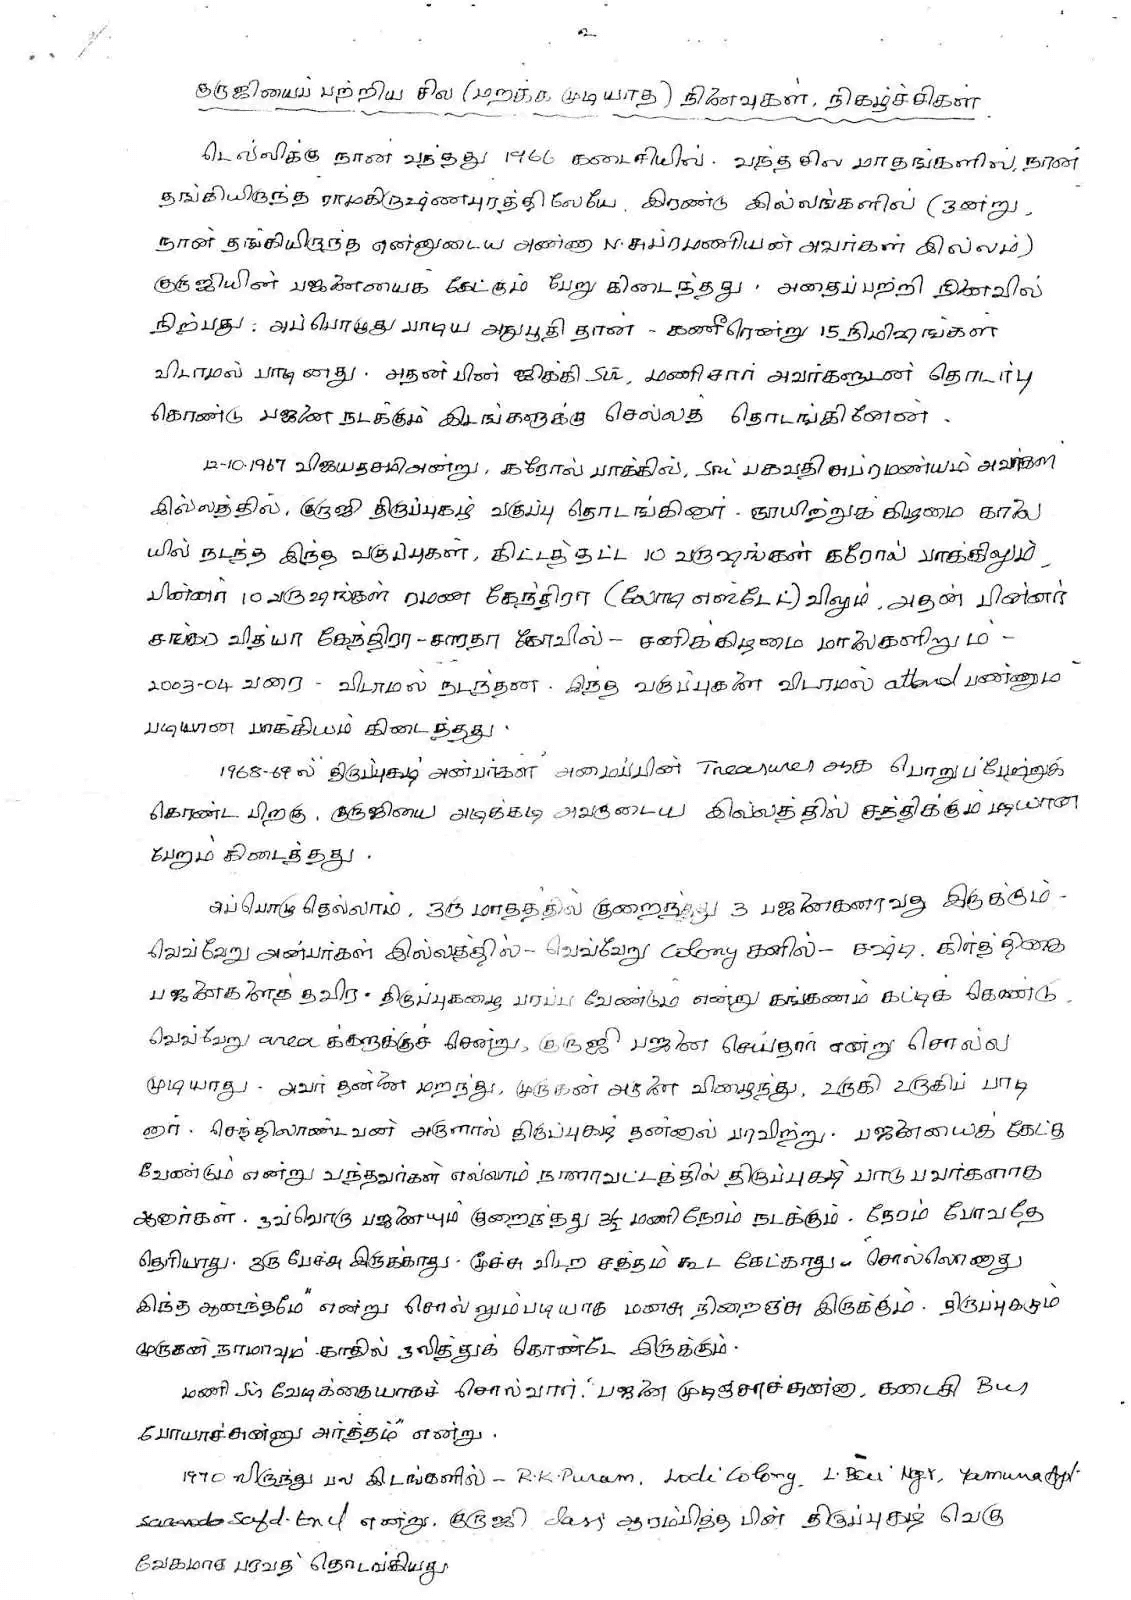 ௨
குருஜியைப் பற்றிய சில (மறக்க முடியாத) நினைவுகள், நிகழ்ச்சிகள்
டெல்லிக்கு நான் வந்தது 1966 கடைசியில். வந்த சில மாதங்களில், நான்
தங்கியிருந்த ராமகிருஷ்ணபுரத்திலேயே, இரண்டு இல்லங்களில் (ஒன்று,
நான் தங்கியிருந்த என்னுடைய அண்ணா N. சுப்ரமணியன் அவர்கள் இல்லம்)
குருஜியின் பஜனையைக் கேட்கும் பேறு கிடைத்தது. அதைப்பற்றி நினைவில்
நிற்பது: அப்பொழுது பாடிய அநுபூதி தான் - கணீரென்று 15 நிமிஷங்கள்
விடாமல் பாடினது. அதன் பின் ஜிக்கி Sir, மணி சார் அவர்களுடன் தொடர்பு
கொண்டு பஜனை நடக்கும் இடங்களுக்கு செல்லத் தொடங்கினேன்.
12-10-1967 விஜயதசமி அன்று, கரோல் பாக்கில், Smt பகவதி சுப்ரமண்யம் அவர்கள்
இல்லத்தில், குருஜி திருப்புகழ் வகுப்பு தொடங்கினார். ஞாயிற்றுக் கிழமை காலை
யில் நடந்த இந்த வகுப்புகள், கிட்டத்தட்ட 10 வருஷங்கள் கரோல் பாக்கிலும்,
பின்னர் 10 வருஷங்கள் ரமண கேந்திரா (லோடி எஸ்டேட்) விலும், அதன் பின்னர்
சங்கர வித்யா கேந்திரா - சாரதா கோவில் - சனிக்கிழமை மாலைகளிலும் -
2003-04 வரை - விடாமல் நடந்தன. இந்த வகுப்புகளை விடாமல் attend பண்ணும்
படியான பாக்கியம் கிடைத்தது.
1968-69ல் திருப்புகழ் அன்பர்கள் அமைப்பின் Treasurer ஆக பொறுப்பேற்றுக்
கொண்ட பிறகு, குருஜியை அடிக்கடி அவருடைய இல்லத்தில் சந்திக்கும் படியான
பேறும் கிடைத்தது.
அப்பொழுதெல்லாம், ஒரு மாதத்தில் குறைந்தது 3 பஜனைகளாவது இருக்கும் -
வெவ்வேறு அன்பர்கள் இல்லத்தில் - வெவ்வேறு Colony களில் - சஷ்டி, கிர்த்திகை
பஜனைகளைத் தவிர. திருப்புகழை பரப்ப வேண்டும் என்று கங்கணம் கட்டிக் கொண்டு,
வெவ்வேறு area க்களுக்குச் சென்று, குருஜி பஜனை செய்தார் என்று சொல்ல
முடியாது. அவர் தன்னை மறந்து, முருகன் அருளை விழைந்து, உருகி உருகிப் பாடி
னார். செந்திலாண்டவன் அருளால் திருப்புகழ் தன்னால் பரவிற்று. பஜனையைக் கேட்க
வேண்டும் என்று வந்தவர்கள் எல்லாம் நாளாவட்டத்தில் திருப்புகழ் பாடுபவர்களாக
ஆனார்கள். ஒவ்வொரு பஜனையும் குறைந்தது 3½ மணி நேரம் நடக்கும். நேரம் போவதே
தெரியாது. ஒரு பேச்சு இருக்காது. மூச்சு விடற சத்தம் கூட கேட்காது. "சொல்லொணாது
இந்த ஆனந்தமே" என்று சொல்லும்படியாக மனசு நிறைஞ்சு இருக்கும். திருப்புகழும்
முருகன் நாமாவும் காதில் ஒலித்துக் கொண்டே இருக்கும்.
மணி Sir வேடிக்கையாகச் சொல்வார். "பஜனை முடிஞ்சாச்சுன்னா, கடைசி Bus
போயாச்சுன்னு அர்த்தம்" என்று.
1970 லிருந்து பல இடங்களில் - R.K.Puram, Lodi Colony, L. Bai Ngr, Yamuna Apt.
Safd. Encl என்று, குருஜி class ஆரம்பித்த பின் திருப்புகழ் வெகு
வேகமாக பரவத் தொடங்கியது